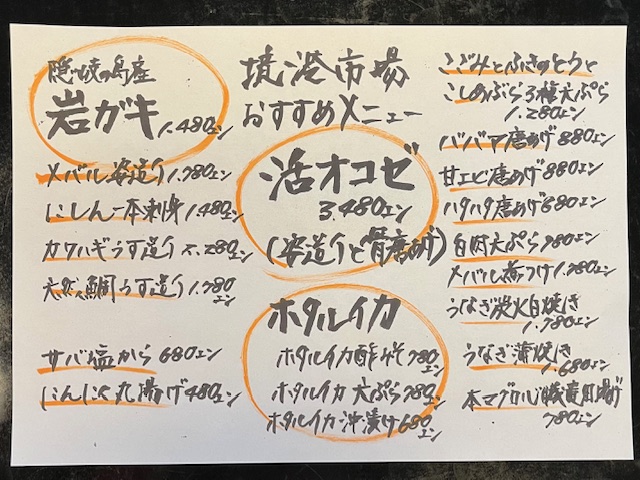 隠岐の島産
岩ガキ 1.480エン
メバル姿造り 1.780エン
にしん一本刺身 1.480エン
カワハギうす造り 2.280エン
天然鯛うす造り 1.780エン
サバ塩から 680エン
にんにく丸揚げ 480エン
境港市場
おすすめメニュー
活オコゼ
3.480エン
(姿造りと骨唐あげ)
ホタルイカ
ホタルイカ酢みそ 780エン
ホタルイカ天ぷら 780エン
ホタルイカ沖漬け 680エン
こごみとふきのとうと
こしあぶら3種天ぷら
1.280エン
ババア唐あげ 880エン
甘エビ唐あげ 880エン
ハタハタ唐あげ 680エン
白肉天ぷら 780エン
メバル煮つけ 1.780エン
うなぎ炭火白焼き
1.780エン
うなぎ蒲焼き
1.680エン
本マグロ
780エン